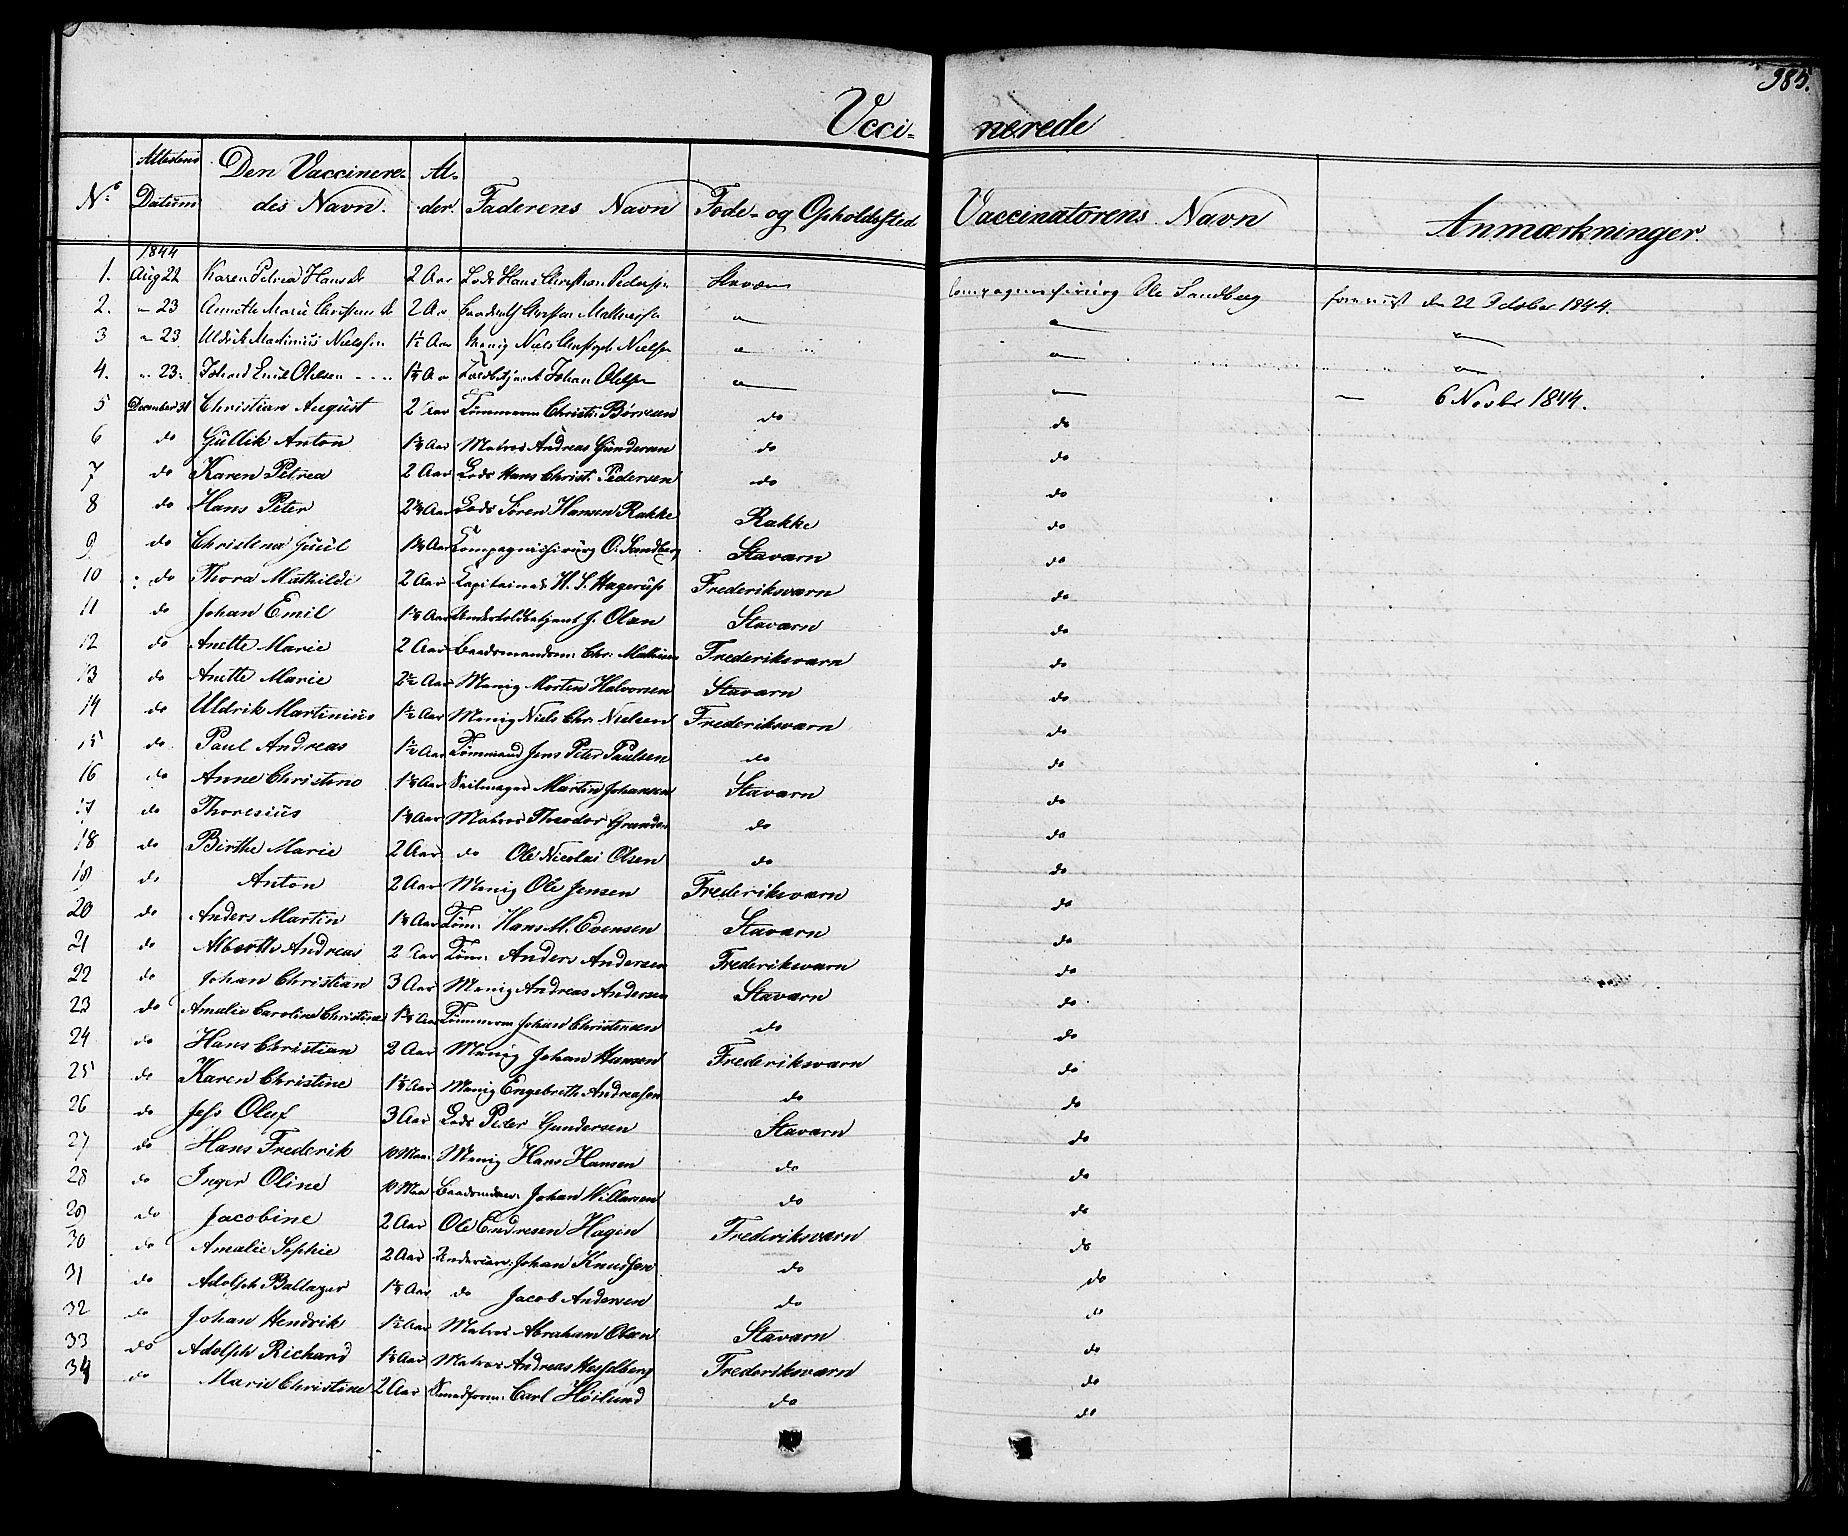 385.
Vcci- nerede
No | Attestens Datum | Den Vaccinere- des Navn. | Al- der. | Faderens Navn | Føde- og Opholdssted | Vaccinatorens Navn | Anmærkninger.
1844
1. | Aug 22 | Karen Petrea Hansd | 2 Aar | Lods Hans Christian Pedersen | Staværn | Compagniechirurg Ole Sandberg | den 22 October 1844.
2. | " 23 | Annette Marie Christensd | 2 Aar | Mathiesen | " | " | "
3 | " 23 | Uldrik Martinius Nielsen | 1½ Aar | Menig Niels Christoph Nielsen | " | " | "
4. | " 23. | Johan Emil Olsen | Aar | Johan Olsen | " | " | - 6 Novbr 1844.
5 | December 31 | Christian August | 2 Aar | Tømmerm Christ: Børresen | do | do
6 | do | Gullik Anton | Aar | Matros Andreas Gundersen | do | do
7 | do | Karen Petrea | 2 Aar | Lods Hans Christ: Pedersen | do | do
8 | do | Hans Peter | Aar | Lods Søren Hansen Rakke | Rakke | do
9 | do | Christena Juul | Aar | Compagnichirurg O. Sandberg | Staværn | do
10 | do | Thora Mathilde | 2 Aar | Capitaine H. S. Hagerup | Frederiksværn | do
11 | do | Johan Emil | Aar | Undertoldbetjent J. Olsen | Staværn | do
12 | do | Anette Marie | 2 Aar | Baadsmandsm: Chr: Mathisen | Frederiksværn | do
13 | do | Anette Marie | 2½ Aar | Menig Morten Halvorsen | Staværn | do
14 | do | Uldrik Martinius | 1½ Aar | Menig Niels Chr. Nielsen | Frederiksværn | do
15 | do | Paul Andreas | 1½ Aar | Tømmand Jens Peter Paulsen | do | do
16 | do | Anne Christine | Aar | Seilmager Martin Johansen | Staværn | do
17 | do | Thoresius | Aar | Matros Theodor | do | do
18 | do | Birthe Marie | 2 Aar | do Ole Nicolai Olsen | do | do
19 | do | Anton | 2 Aar | Menig Ole Jensen | Frederiksværn | do
20 | do | Anders Martin | Aar | Tøm: Hans M. Evensen | Staværn | do
21 | do | Alberth Andreas | 2 Aar | Tøm: Anders Andersen | Frederiksværn | do
22 | do | Johan Christian | 3 Aar | Menig Andreas Andersen | Staværn | do
23 | do | Amalie Caroline Christine | Aar | Tømmerm Johan Christensen | do | do
24 | do | Hans Christian | 2 Aar | Menig Johan Hansen | Frederiksværn | do
25 | do | Karen Christine | Aar | Menig Engebreth Andreasen | do | do
26 | do | Jess Oluf | 3 Aar | Lods Peter Gundersen | Staværn | do
27 | do | Hans Frederik | 10 Maa: | Menig Hans Hansen | do | do
28 | do | Inger Oline | 10 Maa | Baadsmdsm: Johan Willasen | do | do
29 | do | Jacobine | 2 Aar | Ole Endresen Hagen | Frederiksværn | do
30 | do | Amalie Sophie | 2 Aar | Johan Knudsen | do | do
31 | do | Adolph Baltazar | Aar | do Jacob Andersen | do | do
32 | do | Johan Hendrik | 1½ Aar | Matros Abraham Olsen | Staværn | do
33 | do | Adolph Richard | Aar | Matros Andreas Hesselberg | Frederiksværn | do
34 | do | Marie Christine | 2 Aar | Carl Høilund | do | do